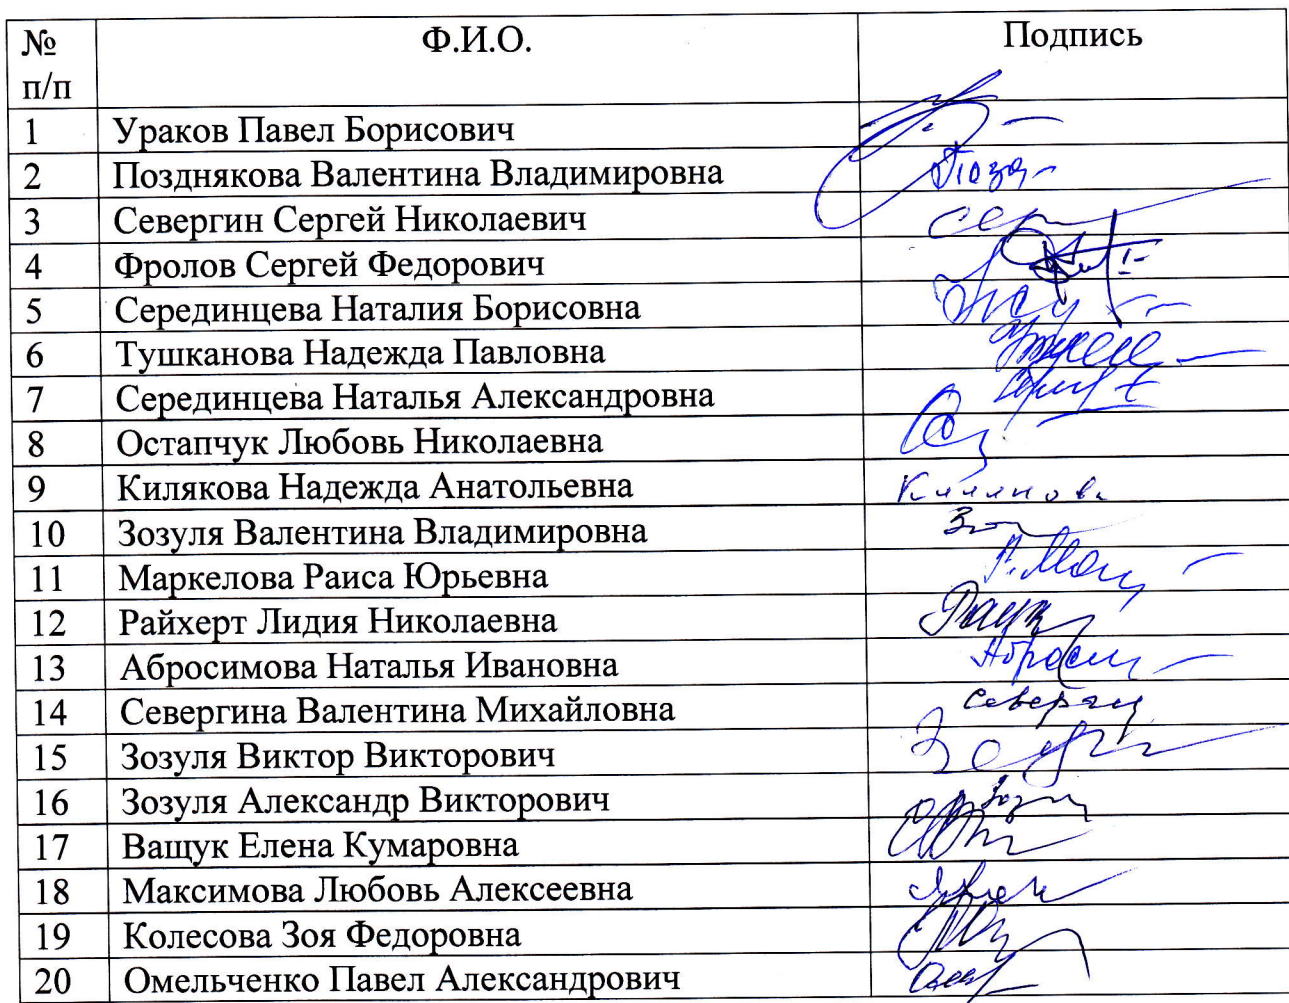 № п/п Ф.И.О. Подпись
1 Ураков Павел Борисович
2 Позднякова Валентина Владимировна
3 Севергин Сергей Николаевич
4 Фролов Сергей Федорович
5 Серединцева Наталия Борисовна
6 Тушканова Надежда Павловна
7 Серединцева Наталья Александровна
8 Остапчук Любовь Николаевна
9 Килякова Надежда Анатольевна
10 Зозуля Валентина Владимировна
11 Маркелова Раиса Юрьевна
12 Райхерт Лидия Николаевна
13 Абросимова Наталья Ивановна
14 Севергина Валентина Михайловна
15 Зозуля Виктор Викторович
16 Зозуля Александр Викторович
17 Ващук Елена Кумаровна
18 Максимова Любовь Алексеевна
19 Колесова Зоя Федоровна
20 Омельченко Павел Александрович